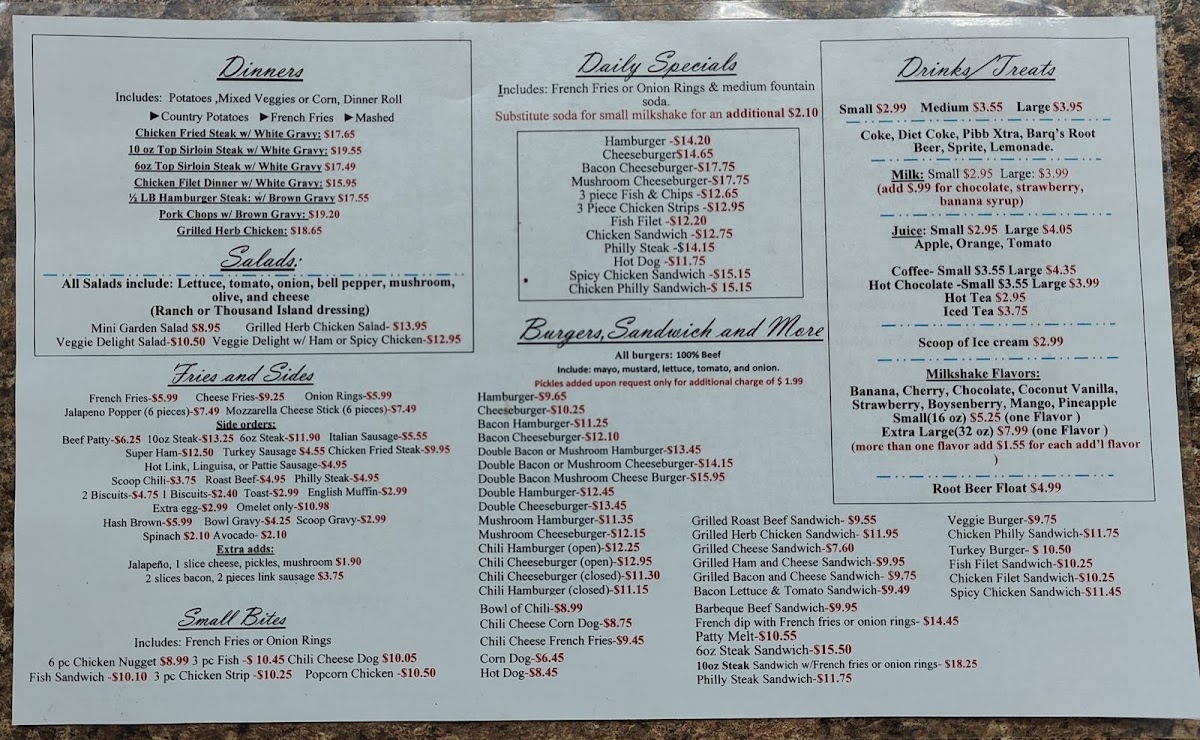 Dinners
Includes: Potatoes ,Mixed Veggies or Corn, Dinner Roll
►Country Potatoes ►French Fries ►Mashed
Chicken Fried Steak w/ White Gravy: $17.65
10 oz Top Sirloin Steak w/ White Gravy: $19.55
6oz Top Sirloin Steak w/ White Gravy $17.49
Chicken Filet Dinner w/ White Gravy: $15.95
½ LB Hamburger Steak: w/ Brown Gravy $17.55
Pork Chops w/ Brown Gravy: $19.20
Grilled Herb Chicken: $18.65
Salads:
All Salads include: Lettuce, tomato, onion, bell pepper, mushroom,
olive, and cheese
(Ranch or Thousand Island dressing)
Mini Garden Salad $8.95 Grilled Herb Chicken Salad- $13.95
Veggie Delight Salad-$10.50 Veggie Delight w/ Ham or Spicy Chicken-$12.95
Fries and Sides
French Fries-$5.99 Cheese Fries-$9.25 Onion Rings-$5.99
Jalapeno Popper (6 pieces)-$7.49 Mozzarella Cheese Stick (6 pieces)-$7.49
Side orders:
Beef Patty-$6.25 10oz Steak-$13.25 6oz Steak-$11.90 Italian Sausage-$5.55
Super Ham-$12.50 Turkey Sausage $4.55 Chicken Fried Steak-$9.95
Hot Link, Linguisa, or Pattie Sausage-$4.95
Scoop Chili-$3.75 Roast Beef-$4.95 Philly Steak-$4.95
2 Biscuits-$4.75 1 Biscuits-$2.40 Toast-$2.99 English Muffin-$2.99
Extra egg-$2.99 Omelet only-$10.98
Hash Brown-$5.99 Bowl Gravy-$4.25 Scoop Gravy-$2.99
Spinach $2.10 Avocado- $2.10
Extra adds:
Jalapeño, 1 slice cheese, pickles, mushroom $1.90
2 slices bacon, 2 pieces link sausage $3.75
Small Bites
Includes: French Fries or Onion Rings
6 pc Chicken Nugget $8.99 3 pc Fish -$ 10.45 Chili Cheese Dog $10.05
Fish Sandwich -$10.10 3 pc Chicken Strip -$10.25 Popcorn Chicken -$10.50
Daily Specials
Includes: French Fries or Onion Rings & medium fountain
soda.
Substitute soda for small milkshake for an additional $2.10
Hamburger -$14.20
Cheeseburger$14.65
Bacon Cheeseburger-$17.75
Mushroom Cheeseburger-$17.75
3 piece Fish & Chips -$12.65
3 Piece Chicken Strips -$12.95
Fish Filet -$12.20
Chicken Sandwich -$12.75
Philly Steak -$14.15
Hot Dog -$11.75
Spicy Chicken Sandwich -$15.15
Chicken Philly Sandwich-$ 15.15
Burgers, Sandwich and More
All burgers: 100% Beef
Include: mayo, mustard, lettuce, tomato, and onion.
Pickles added upon request only for additional charge of $ 1.99
Hamburger-$9.65
Cheeseburger-$10.25
Bacon Hamburger-$11.25
Bacon Cheeseburger-$12.10
Double Bacon or Mushroom Hamburger-$13.45
Double Bacon or Mushroom Cheeseburger-$14.15
Double Bacon Mushroom Cheese Burger-$15.95
Double Hamburger-$12.45
Double Cheeseburger-$13.45
Mushroom Hamburger-$11.35
Mushroom Cheeseburger-$12.15
Chili Hamburger (open)-$12.25
Chili Cheeseburger (open)-$12.95
Chili Cheeseburger (closed)-$11.30
Chili Hamburger (closed)-$11.15
Bowl of Chili-$8.99
Chili Cheese Corn Dog-$8.75
Chili Cheese French Fries-$9.45
Corn Dog-$6.45
Hot Dog-$8.45
Grilled Roast Beef Sandwich- $9.55
Grilled Herb Chicken Sandwich- $11.95
Grilled Cheese Sandwich-$7.60
Grilled Ham and Cheese Sandwich-$9.95
Grilled Bacon and Cheese Sandwich- $9.75
Bacon Lettuce & Tomato Sandwich-$9.49
Barbeque Beef Sandwich-$9.95
French dip with French fries or onion rings- $14.45
Patty Melt-$10.55
6oz Steak Sandwich-$15.50
10oz Steak Sandwich w/French fries or onion rings- $18.25
Philly Steak Sandwich-$11.75
Veggie Burger-$9.75
Chicken Philly Sandwich-$11.75
Turkey Burger- $ 10.50
Fish Filet Sandwich-$10.25
Chicken Filet Sandwich-$10.25
Spicy Chicken Sandwich-$11.45
Drinks/Treats
Small $2.99 Medium $3.55 Large $3.95
Coke, Diet Coke, Pibb Xtra, Barq's Root
Beer, Sprite, Lemonade.
Milk: Small $2.95 Large: $3.99
(add $.99 for chocolate, strawberry,
banana syrup)
Juice: Small $2.95 Large $4.05
Apple, Orange, Tomato
Coffee- Small $3.55 Large $4.35
Hot Chocolate -Small $3.55 Large $3.99
Hot Tea $2.95
Iced Tea $3.75
Scoop of Ice cream $2.99
Milkshake Flavors:
Banana, Cherry, Chocolate, Coconut Vanilla,
Strawberry, Boysenberry, Mango, Pineapple
Small(16 oz) $5.25 (one Flavor )
Extra Large(32 oz) $7.99 (one Flavor )
(more than one flavor add $1.55 for each add'l flavor
)
Root Beer Float $4.99